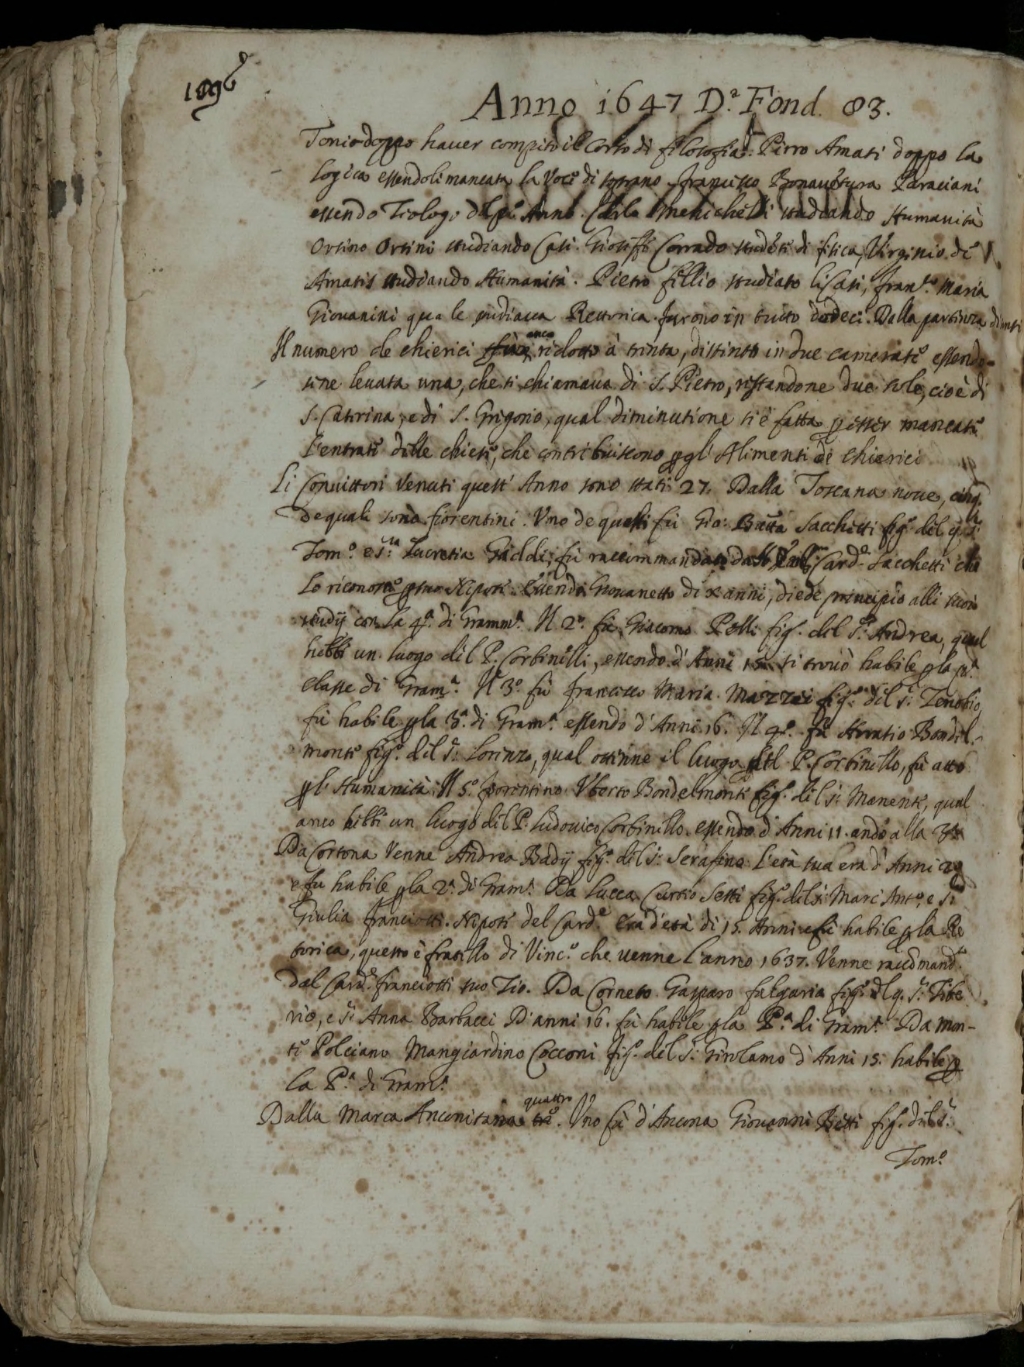 Anno 1647 D.ª Fond. 83.
Tonio doppo hauer compito il Corso di filosofia. Pirro Amati doppo la
Logica essendoli mancata la Voce di soprano. francesco Bonauentura Paraciani
essendo Teologo del p.º Anno. Carlo Menichelli studiando Humanità
Orsino Orsini studiando Casi. Gioseffo Corrado studẽte di fisica, Virginio de
Amatis studiando Humanità. Pietro fillio studiato li Casi, fran.º Maria
Giouanini qua le studiaua Rettorica furono in tutto dodeci. Dalla partenza
Il numero de chierici anco ridotto à trinta, distinto in due camerate essendo-
sine leuata una, che si chiamaua di S. Pietro, restandone due sole, cioè di
S. Caterina, e di S. Grigorio, qual diminutione si è fatta p esser mancate
l'entrate delle chiese, che contribuiscono p gl' Alimenti de chierici
Li Conuittori Venuti quest' Anno sono stati 27. Dalla Toscana noue, cinq̃
de quali sono fiorentini. Vno de questi fù Gio: Batta Sacchetti fig.º del q. S.r
Tom.º e S.ra Lucretia Gaddi, fù raccommandato dal Card.e Sacchetti che
lo riconosce p suo Nipote. Essendo Giouanetto di x anni, diede principio alli suoi
studij con la 4.ª di Gramm.ª Il 2.º fù Giacomo Polli fig.º del S.r Andrea, qual
hebbe un luogo del P. Corbinelli, essendo d'Anni 15. si trouò habile p la p.ª
classe di Gram.ª Il 3.º fù francesco Maria Mazzei fig.º del S.r Zenobio,
fù habile p la 3.ª di Gram.ª essendo d'Anni 16. Il 4.º fù Horatio Bondel-
monte fig.º del S.r Lorenzo, qual ottenne il luogo del P. Corbinello, fù atto
p l'Humanità. Il 5.º fiorentino Vberto Bondelmonte fig.º del S.r Manente, qual
anco hebbe un luogo del P. Ludouico Corbinello. essendo d'Anni 11. andò alla 3.ª
Da Cortona Venne Andrea Badij fig.º del S.r Serafino. l'età sua era d'Anni
e fu habile p la 2.ª di Gram.ª Da Lucca Curtio Setti fig.º del S. Marc'Ant.º e S.ra
Giulia franciotti Nipote del Card.e Era d'età di 15. Anni e fù habile p la Re
torica, questo è fratello di Vinc.º che uenne l'anno 1637. Venne raccõmand.º
dal Card.e franciotti suo Tio. Da Corneto Gasparo falgaria fig.º del q. S.r Tibe
rio, e S.ra Anna Barbacci D'anni 16. fù habile p la P.ª di Gram.ª Da Mon-
te Polciano Mangiardino Cocconi fig.º del S.r Girolamo d'Anni 15. habile p
la P.ª di Gram.ª
Dalla Marca Anconitana quattro tre. Vno fù d'Ancona Giouanni Betti fig.º del S.r
Tom.º